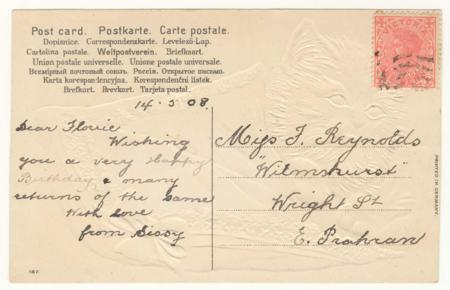 Post card. Postkarte. Carte postale.
Dopisnice. Correspondenzkarte. Levelező-Lap.
Cartolina postale. Weltpostverein. Briefkaart.
Union postale universelle. Unione postale universale.
Всемірный почтовый союзъ. Россія. Открытое письмо.
Karta korespondencyjna. Korespondenční lístek.
Brefkort. Brevkort. Tarjeta postal.
VICTORIA
14.5 08.
Dear Florie
Wishing
you a very Happy
Birthday & many
returns of the same
With love
from Sissy
Miss F. Reynolds
"Wilmshurst"
Wright St
E. Prahran
PRINTED IN GERMANY.